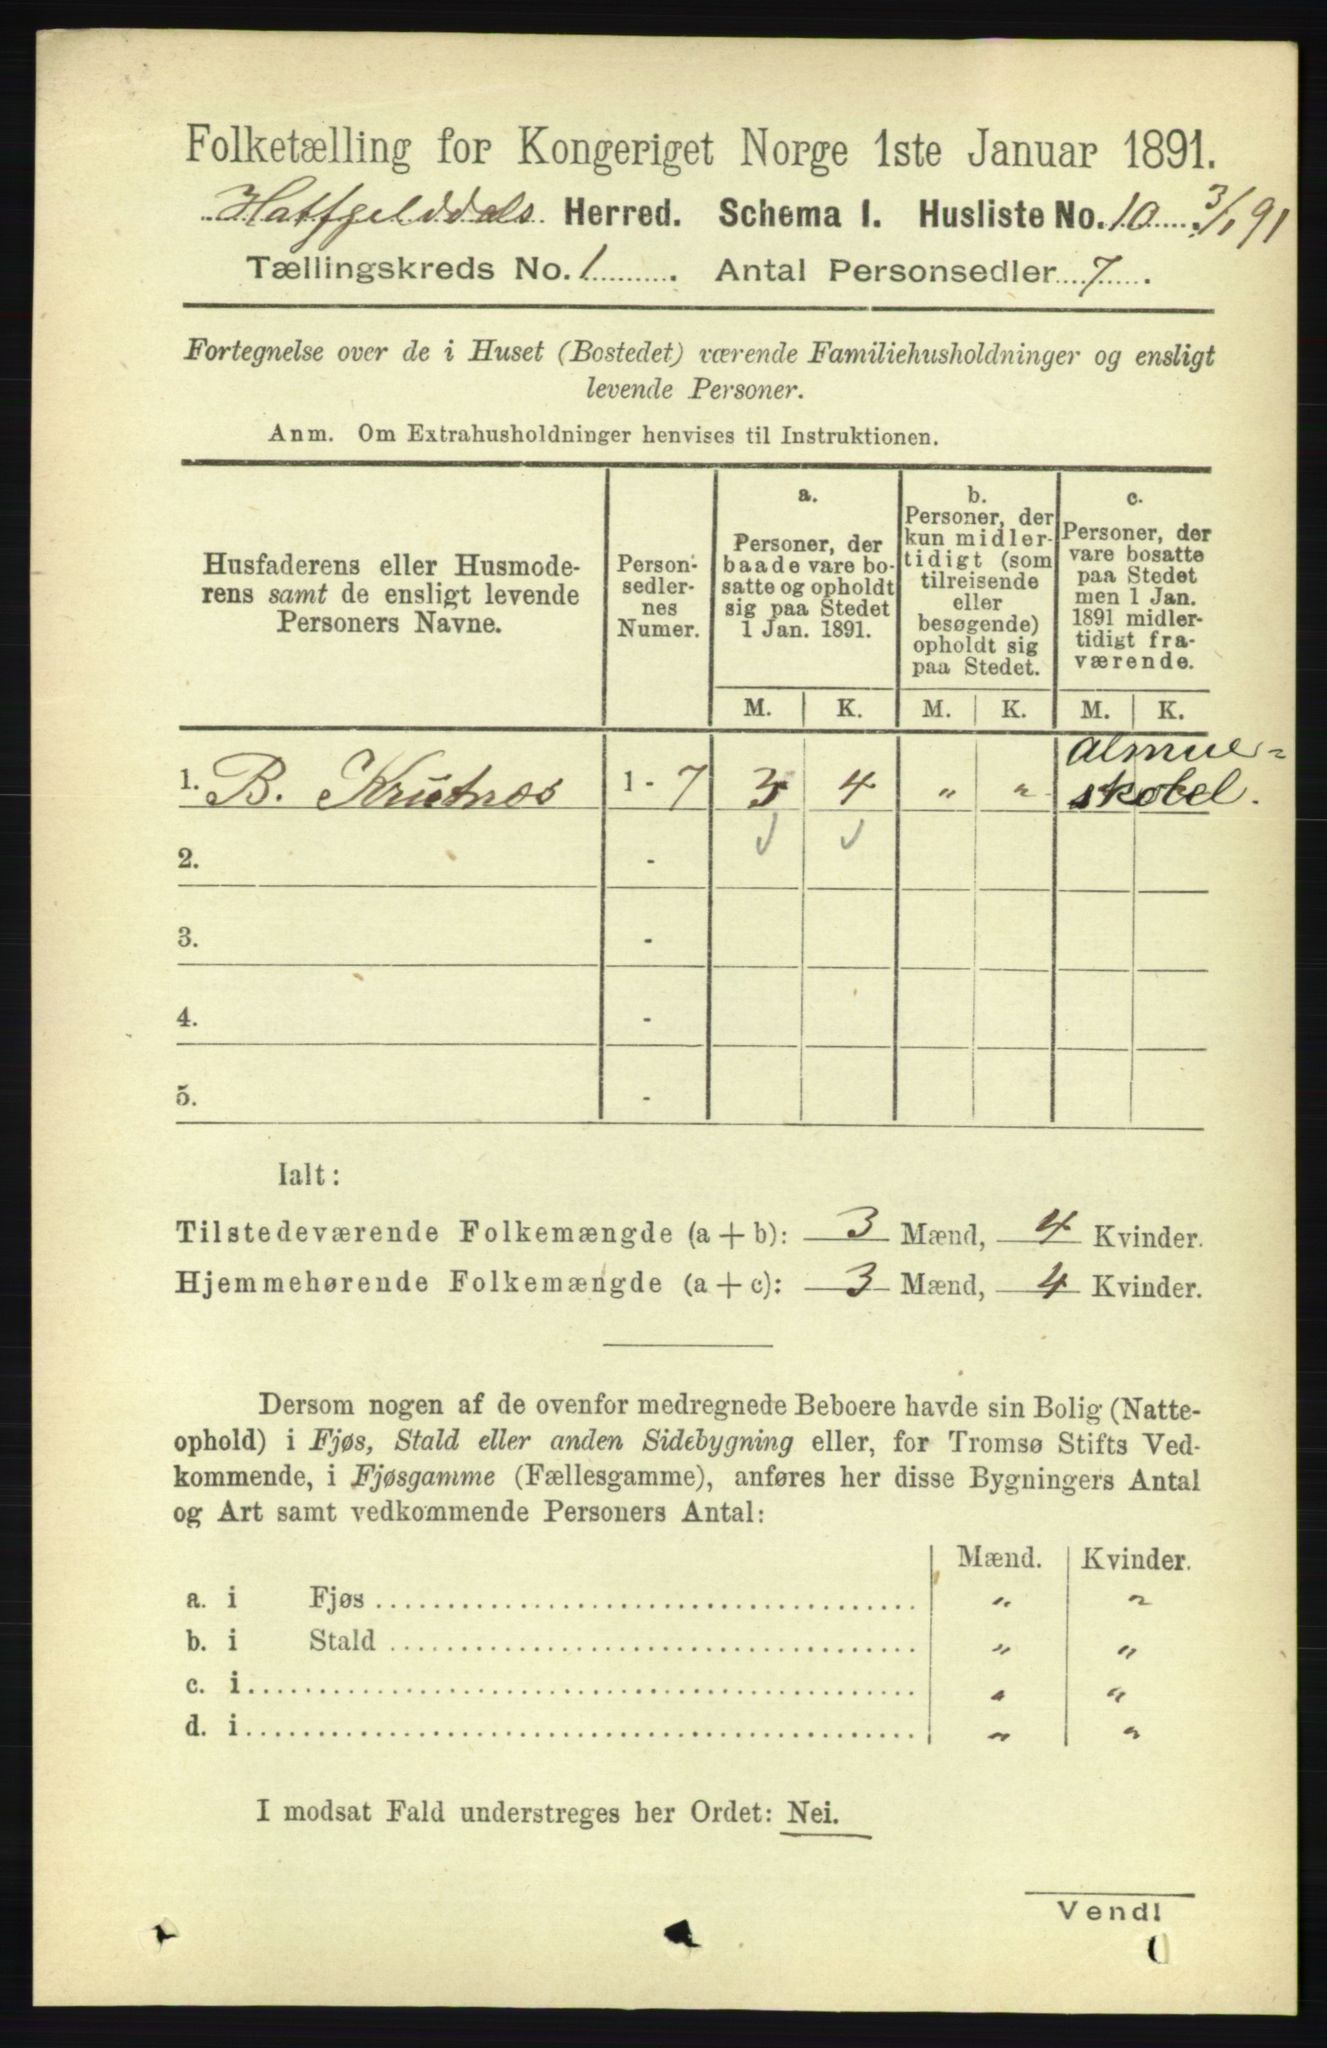 Folketælling for Kongeriget Norge 1ste Januar 1891.
Hatfjelddals Herred. Schema I. Husliste No. 10. 3/1 91
Tællingskreds No. 1. Antal Personsedler 7.
Fortegnelse over de i Huset (Bostedet) værende Familiehusholdninger og ensligt
levende Personer.
Anm. Om Extrahusholdninger henvises til Instruktionen.
Husfaderens eller Husmode-
rens samt de ensligt levende
Personers Navne.
Person-
sedler-
nes
Numer.
a.
Personer, der
baade vare bo-
satte og opholdt
sig paa Stedet
1 Jan. 1891.
b.
Personer, der
kun midler-
tidigt (som
tilreisende
eller
besøgende)
opholdt sig
paa Stedet.
c.
Personer, der
vare bosatte
paa Stedet
men 1 Jan.
1891 midler-
tidigt fra-
værende.
M. K. M. K. M. K.
1. B. Krutnæs 1 - 7 3 4 " " almue-
skobel.
2. -
3. -
4. -
5. -
Ialt:
Tilstedeværende Folkemængde (a + b): 3 Mænd, 4 Kvinder.
Hjemmehørende Folkemængde (a + c): 3 Mænd, 4 Kvinder.
Dersom nogen af de ovenfor medregnede Beboere havde sin Bolig (Natte-
ophold) i Fjøs, Stald eller anden Sidebygning eller, for Tromsø Stifts Ved-
kommende, i Fjøsgamme (Fællesgamme), anføres her disse Bygningers Antal
og Art samt vedkommende Personers Antal:
Mænd. Kvinder.
a. i Fjøs " "
b. i Stald " "
c. i " "
d. i " "
I modsat Fald understreges her Ordet: Nei.
Vend!